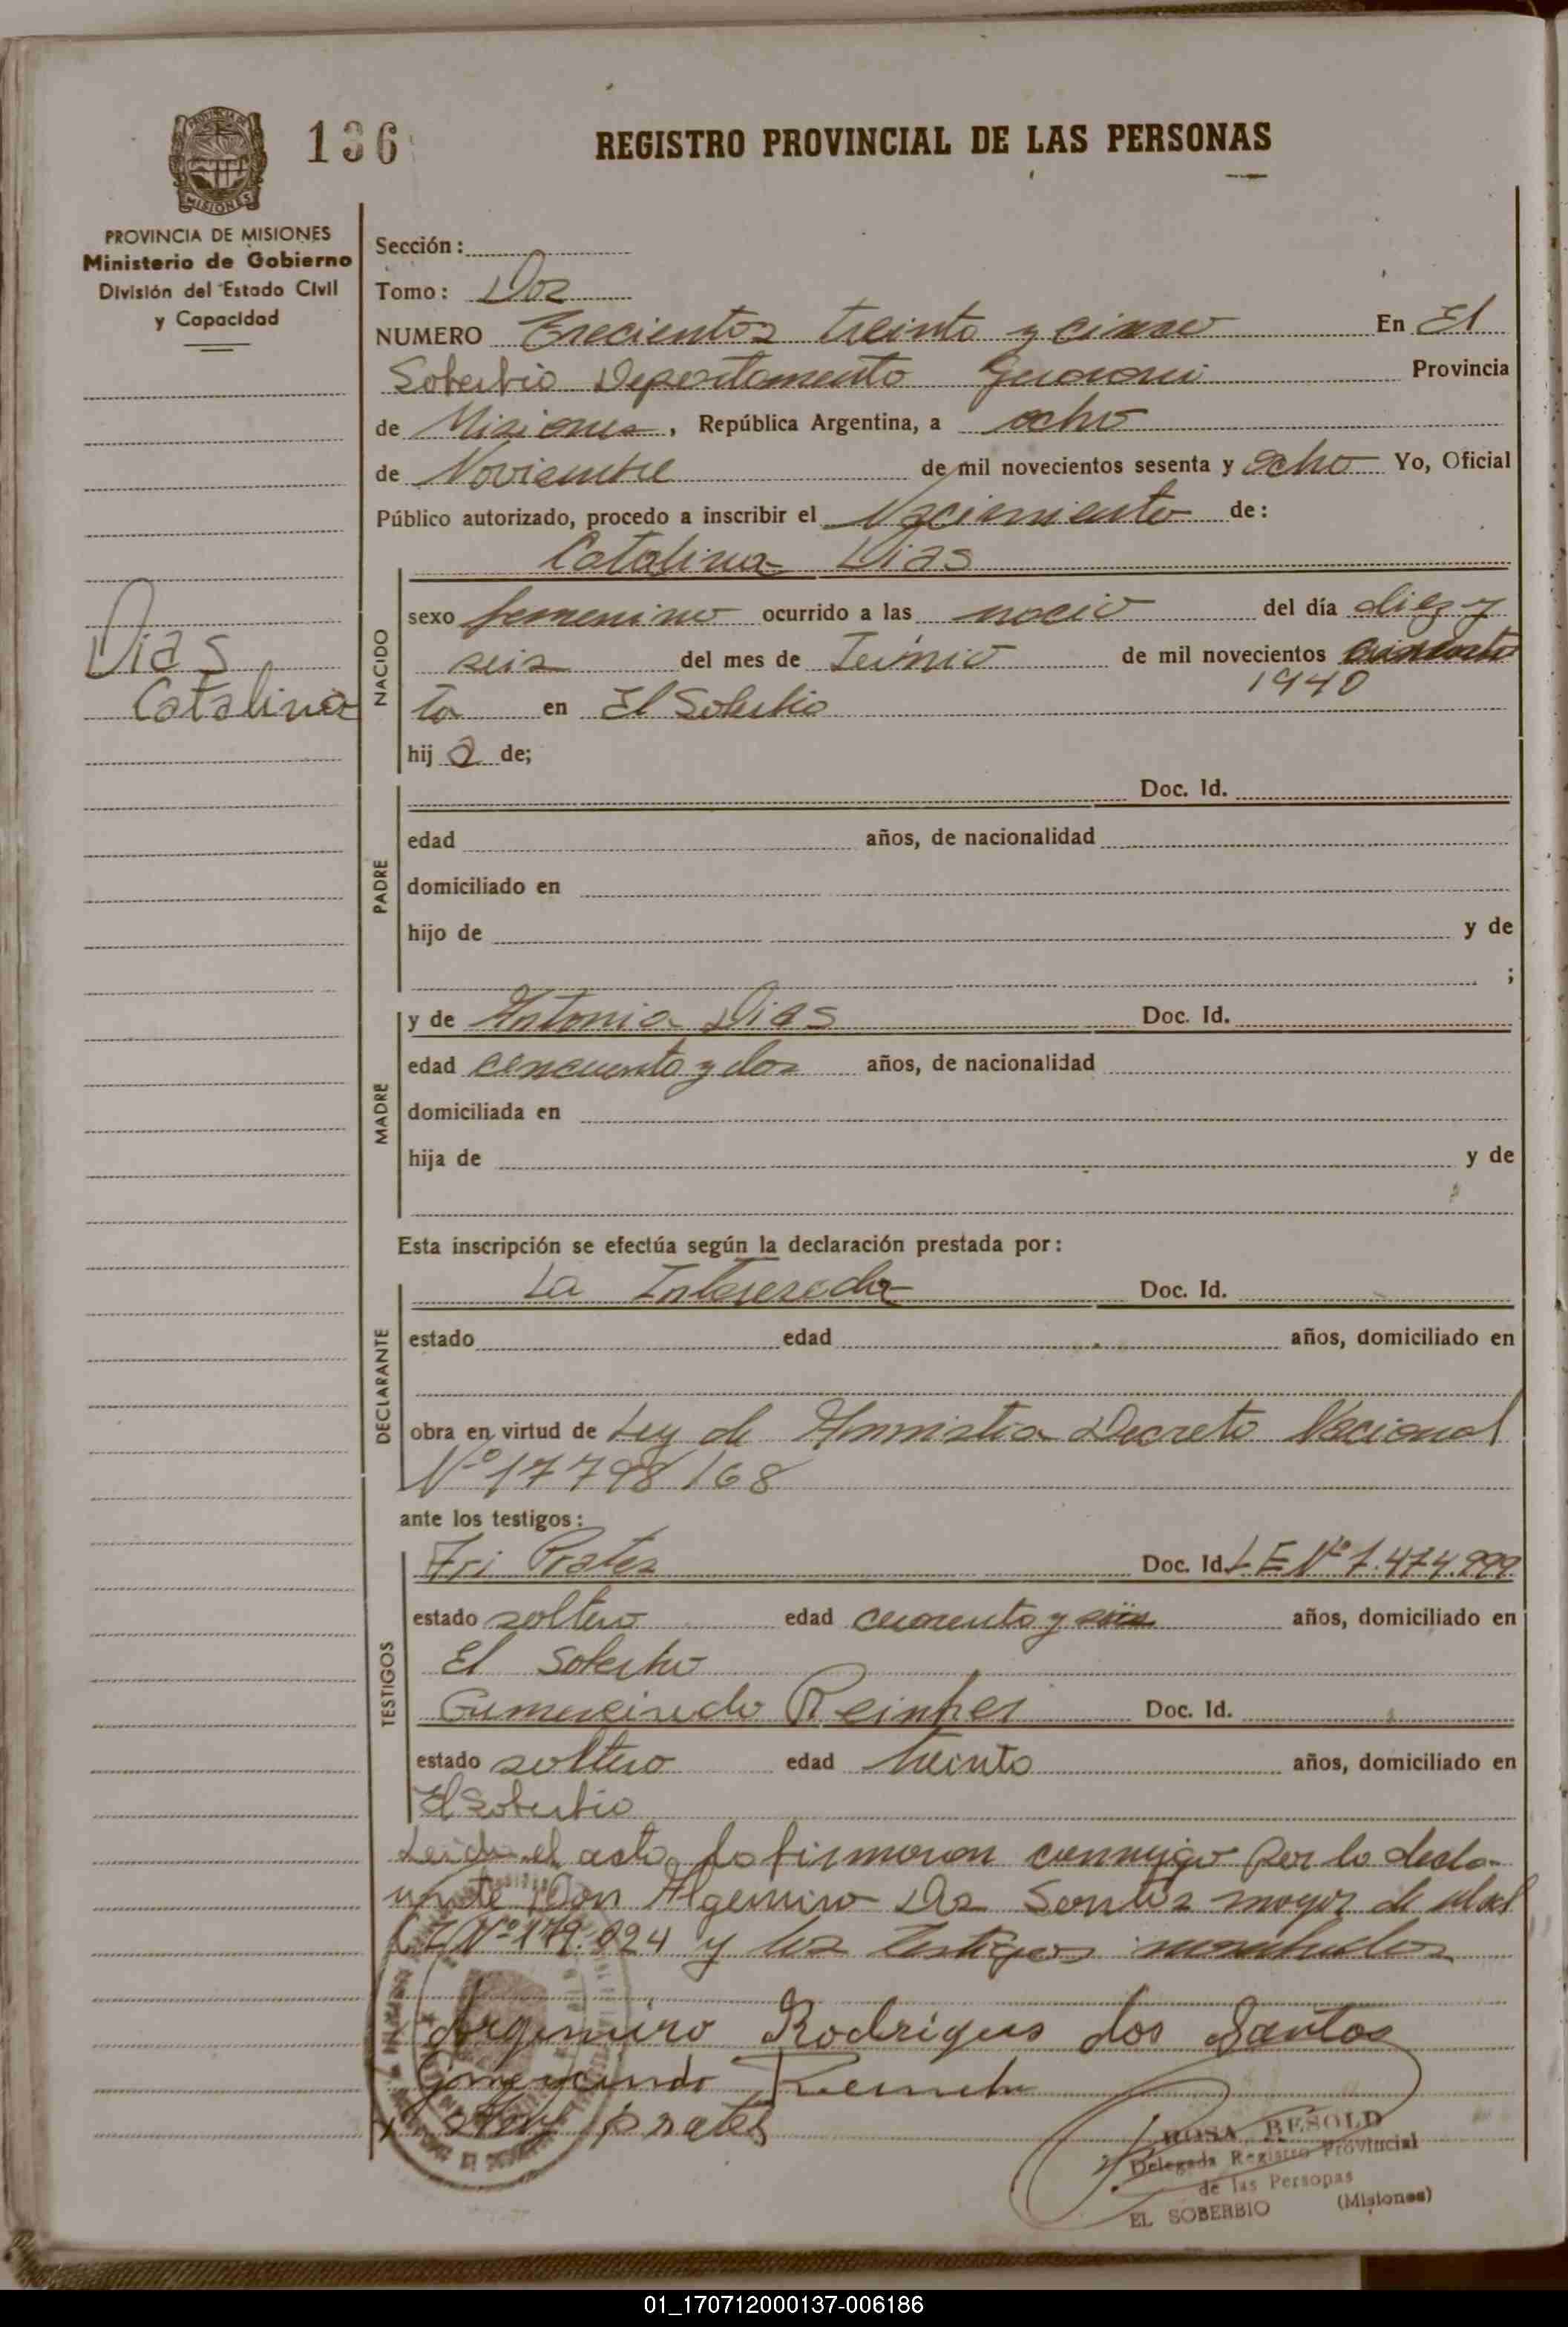 136
REGISTRO PROVINCIAL DE LAS PERSONAS
PROVINCIA DE MISIONES
Ministerio de Gobierno
División del Estado Civil
y Capacidad
Sección:
Tomo: Dos
NUMERO Trecientos treinta y cinco En El
Soberbio Departamento Guarani Provincia
de Misiones, República Argentina, a ocho
de Noviembre de mil novecientos sesenta y ocho Yo, Oficial
Público autorizado, procedo a inscribir el Nacimiento de:
Catalina Dias
Dias
Catalina
NACIDO
sexo femenino ocurrido a las del día diez y
seis del mes de Junio de mil novecientos
1940
ta en El Soberbio
hij a de;
PADRE
Doc. Id.
edad años, de nacionalidad
domiciliado en
hijo de y de
;
MADRE
y de Antonia Dias Doc. Id.
edad cincuenta y dos años, de nacionalidad
domiciliada en
hija de y de
Esta inscripción se efectúa según la declaración prestada por:
DECLARANTE
La Interesada Doc. Id.
estado edad años, domiciliado en
obra en virtud de Ley de Amnistia Decreto Nacional
Nº 17798/68
ante los testigos:
TESTIGOS
Ari Prates Doc. Id. L E Nº 7.474.999
estado soltero edad cuarenta y seis años, domiciliado en
El Soberbio
Gumercindo Reinher Doc. Id.
estado soltero edad treinta años, domiciliado en
El Soberbio
Leida el acta, la firmaron conmigo por la decla-
rante Don Algemiro Dos Santos mayor de edad
C I Nº 179.024 y los testigos nombrados
Argimiro Rodrigues dos Santos
Gomercindo
Ary prates
ROSA BESOLD
Delegada Registro Provincial
de las Personas
EL SOBERBIO (Misiones)
01_170712000137-006186